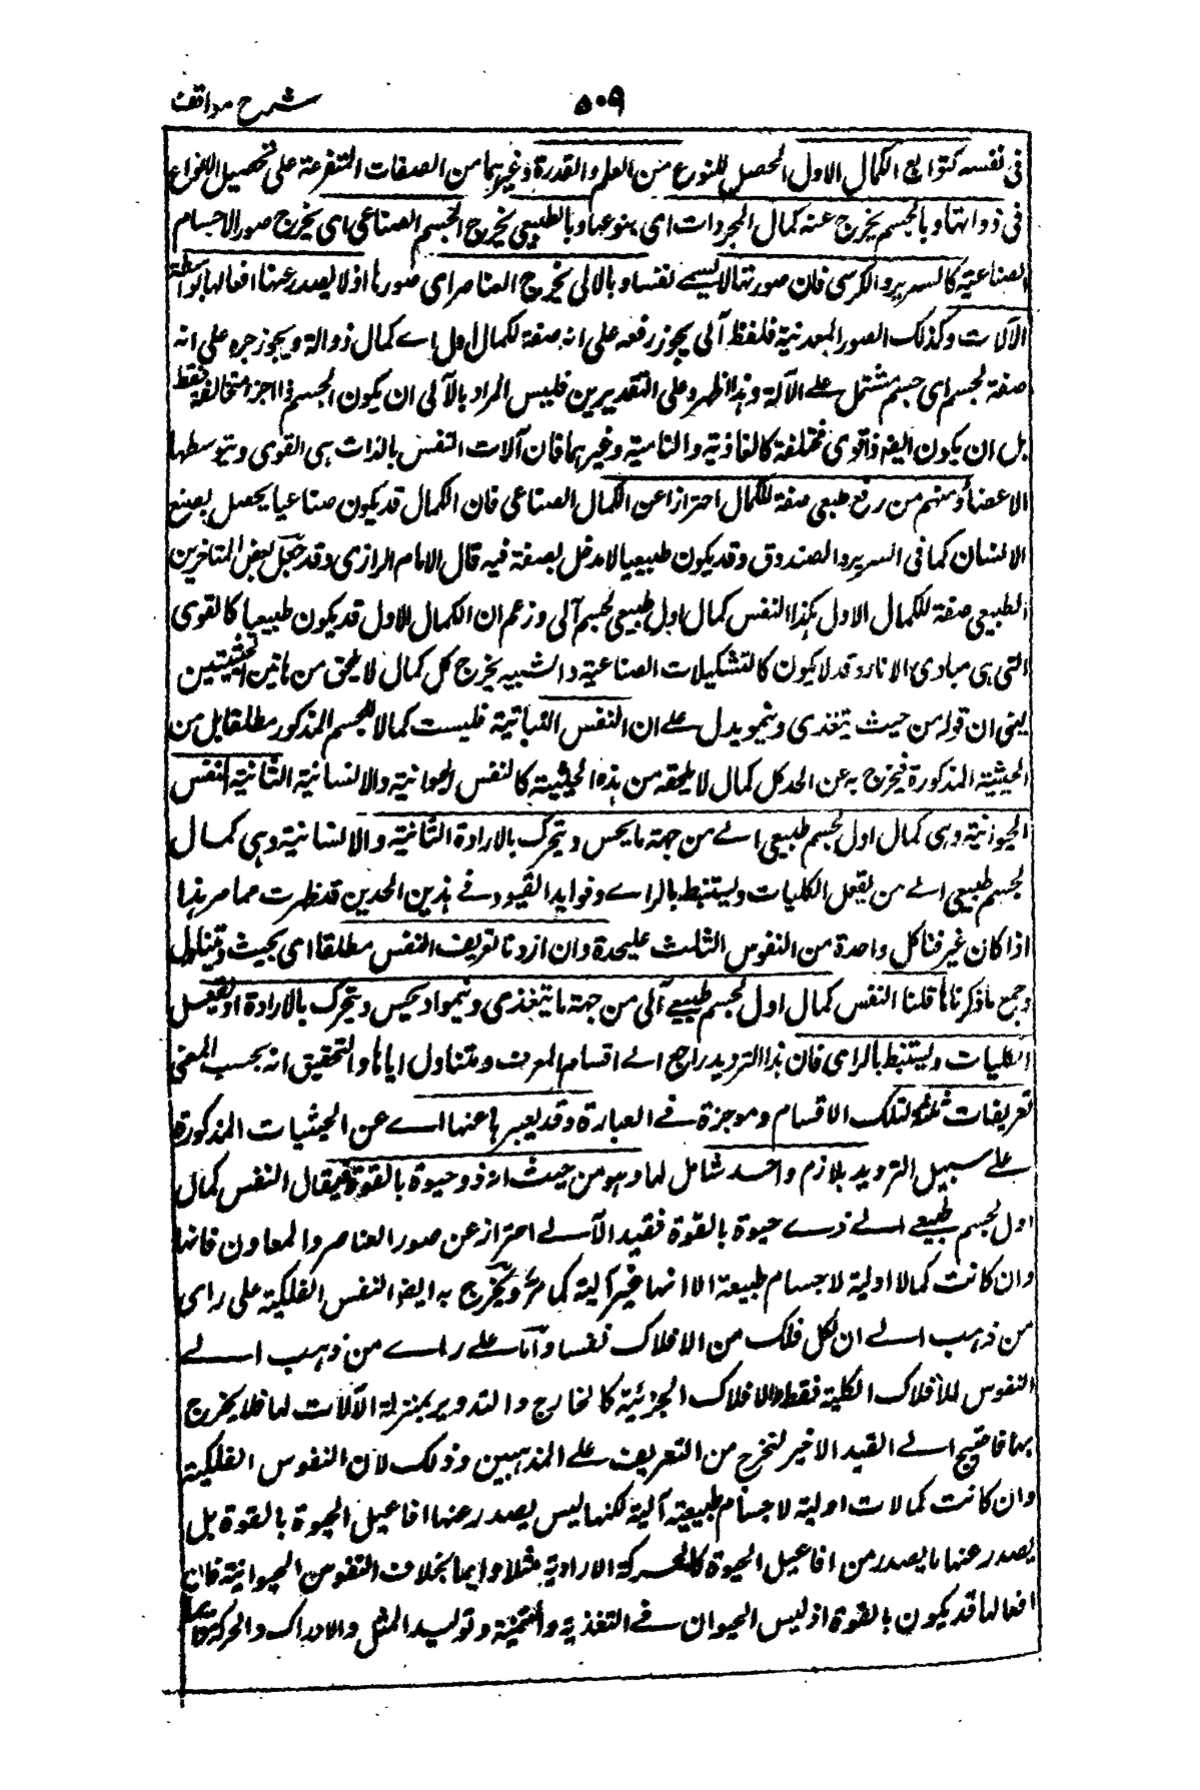 شرح مواقف
٥٠٩
فى نفسه كتوابع الكمال الاول المحصل للنوع من العلم والقدرة وغيرهما من الصفات المتفرعة على تحصيل الانواع
فى ذواتها وبالجسم يخرج عنه كمال المجردات اى بنوعها وبالطبيعى يخرج الجسم الصناعى اى يخرج صور الاجسام
الصناعية كالسرير والكرسى فان صورتها لا يسمى نفسا وبالالى يخرج العناصر اى صورها اذ لا يصدر عنها افعالها بواسطة
الآلات وكذلك الصور المعدنية فلفظ آلى يجوز رفعه على انه صفة لكمال اول اى كمال ذو الة ويجوز جره على انه
صفة لجسم اى جسم مشتمل على الآلة وهذا اظهر وعلى التقديرين فليس المراد بالآلى ان يكون الجسم ذا اجزاء متخالفة فقط
بل ان يكون ايضا ذا قوى مختلفة كالغاذية والنامية وغيرهما فان آلات النفس بالذات هى القوى وبتوسطها
الاعضاء ومنهم من رفع طبعى صفة للكمال احترازا عن الكمال الصناعى فان الكمال قد يكون صناعيا يحصل بصنع
الانسان كما فى السرير والصندوق وقد يكون طبيعيا لا مدخل بصفة فيه قال الامام الرازى وقد جعل بعض المتاخرين
الطبيعى صفة للكمال الاول هكذا النفس كمال اول طبيعى لجسم آلى وزعم ان الكمال الاول قد يكون طبيعيا كالقوى
التى هى مبادى الاثار وقد لا يكون كالتشكيلات الصناعية والشبيه يخرج كل كمال لا يلحق من هاتين الحيثيتين
يعنى ان قوله من حيث يتغذى وينمو يدل على ان النفس النباتية فليست كمالا للجسم المذكور مطلقا بل من
الحيثية المذكورة فيخرج به عن الحد كل كمال لا يلحقه من هذه الحيثية كالنفس الحيوانية والانسانية الثانية النفس
الحيوانية وهى كمال اول لجسم طبيعى الى من جهة ما يحس ويتحرك بالارادة الثالثة والانسانية وهى كمال
لجسم طبيعى الى من يعقل الكليات ويستنبط بالراے وفوايد القيود فى هذين الحدين قد ظهرت مما مر هذا
اذا كان غير فنا كل واحدة من النفوس الثلث عليحدة وان اردنا تعريف النفس مطلقا اى بحيث يتناول
وجمع ما ذكرناها قلنا النفس كمال اول لجسم طبيعى آلى من جهة ما يتغذى وينمو او يحس ويتحرك بالارادة او يعقل
الكليات ويستنبط بالراى فان هذا الترديد راجع الى اقسام المعرف ومتناول اياها والتحقيق انه بحسب المعنى
تعريفات ثلثة لتلك الاقسام وموجزة فى العبارة وقد يعبر ها عنها اے عن الحيثيات المذكورة
على سبيل الترديد بلازم واحد شامل لها وهو من حيث انه ذو حيوة بالقوة فيقال النفس كمال
اول لجسم طبيعى الى ذے حيوة بالقوة فقيد الآلى احتراز عن صور العناصر والمعاون فانها
وان كانت كمالا اولية لاجسام طبيعة الا انها غير آلية كما مر ويخرج به ايضا النفس الفلكية على راى
من ذهب الى ان لكل فلك من الافلاك نفسا واما على راے من ذهب الى
النفوس للافلاك الكلية فقط والافلاك الجزئية كالخارج والتدوير بمنزلة الآلات لها فلا يخرج
بها فاحتيج الى القيد الاخير لتخرج من التعريف على المذهبين وذلك لان النفوس الفلكية
وان كانت كمالات اولية لاجسام طبيعية آلية لكنها ليس يصدر عنها افاعيل الحيوة بالقوة بل
يصدر عنها ما يصدر من افاعيل الحيوة كالحركة الارادية مثلا دايما بخلاف النفوس الحيوانية فان
افعالها قد يكون بالقوة اذ ليس الحيوان فى التغذية والتنمية وتوليد المثل والادراك والحركة دايما